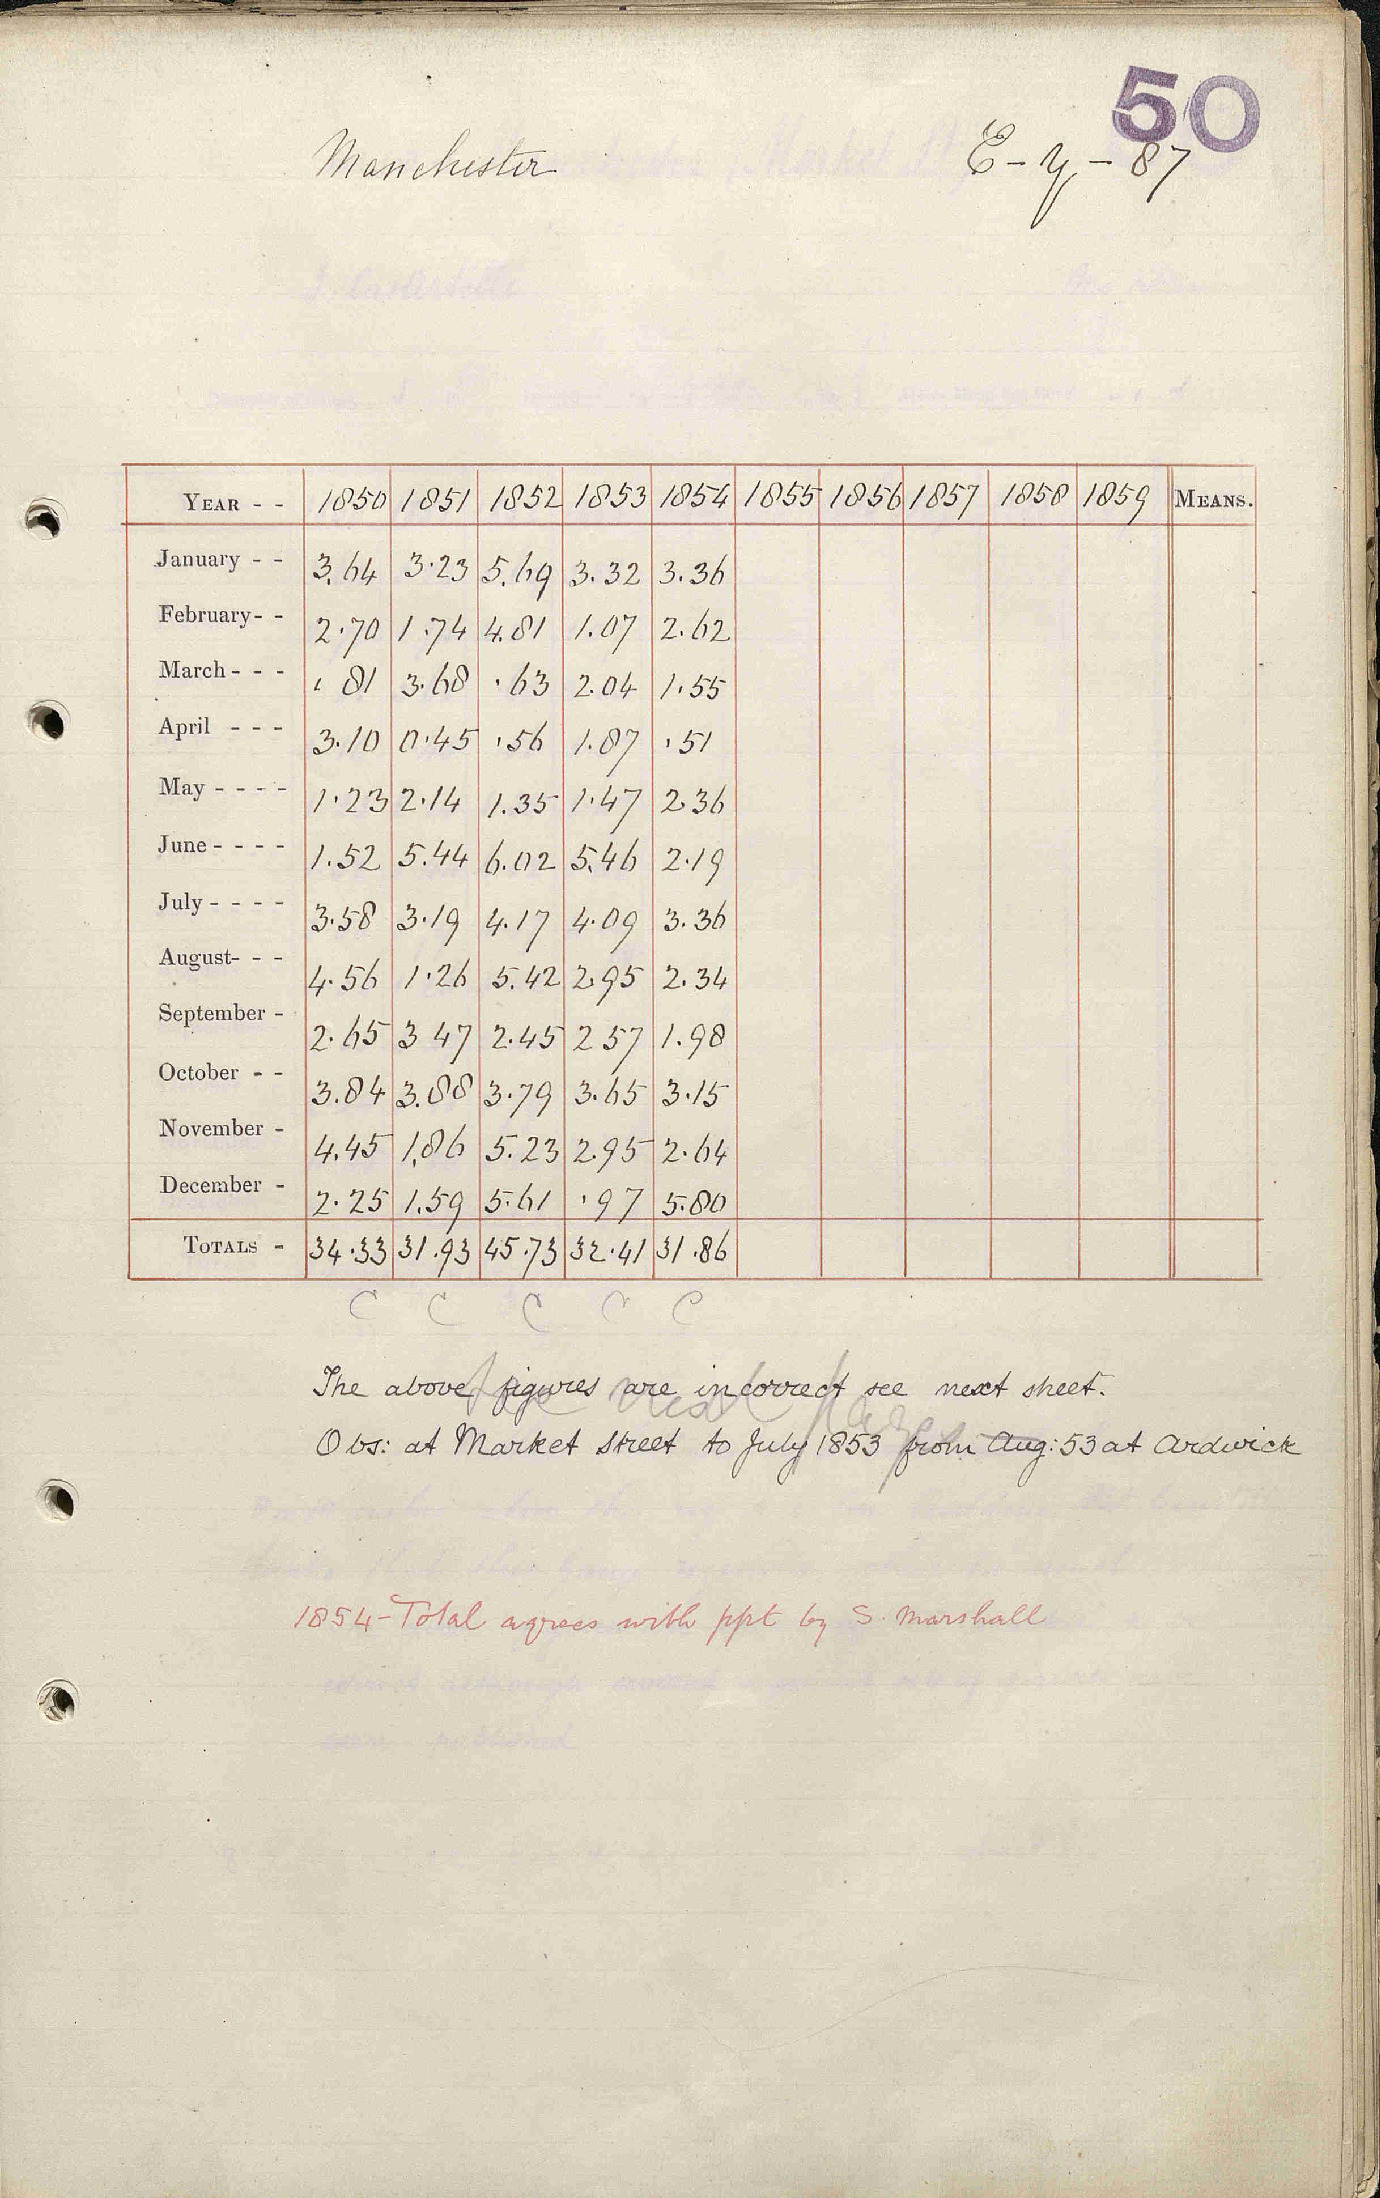 50
Manchester E-y-87
YEAR - - 1850 1851 1852 1853 1854 1855 1856 1857 1858 1859 MEANS.
January - - 3.64 3.23 5.69 3.32 3.36
February - - 2.70 1.74 4.81 1.07 2.62
March - - - .81 3.68 .63 2.04 1.55
April - - - 3.10 0.45 .56 1.87 .51
May - - - - 1.23 2.14 1.35 1.47 2.36
June - - - - 1.52 5.44 6.02 5.46 2.19
July - - - - 3.58 3.19 4.17 4.09 3.36
August- - - 4.56 1.26 5.42 2.95 2.34
September - 2.65 3 47 2.45 2 57 1.98
October - - 3.84 3.88 3.79 3.65 3.15
November - 4.45 1.86 5.23 2.95 2.64
December - 2.25 1.59 5.61 .97 5.80
TOTALS - 34.33 31.93 45.73 32.41 31.86
C C C C C
The above figures are incorrect see next sheet.
Obs: at Market Street to July 1853 from Aug: 53 at Ardwick
1854 - Total agrees with ppt by S. Marshall